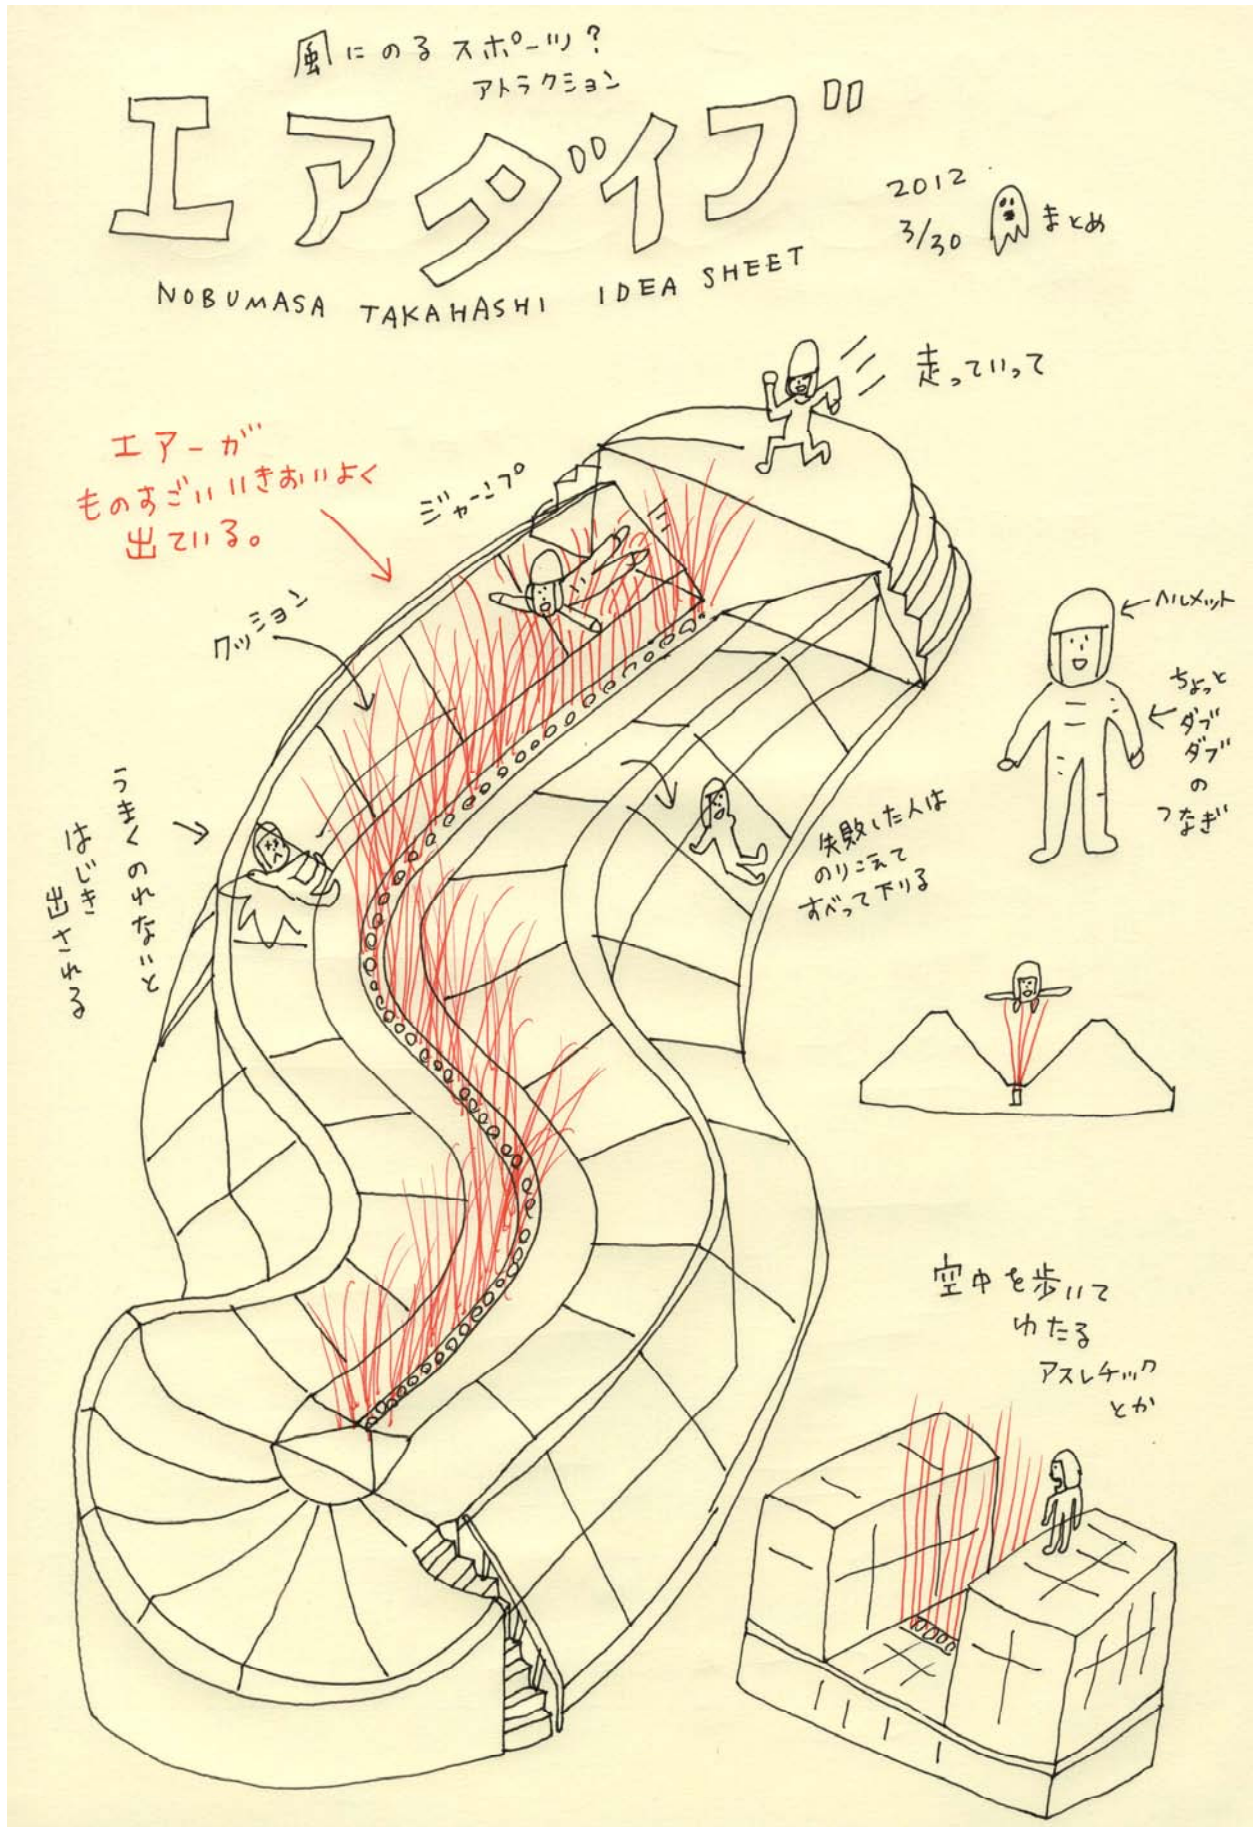 風にのるスポーツ?
アトラクション
エアダイブ
2012
3/30 まとめ
NOBUMASA TAKAHASHI IDEA SHEET
走っていって
エアーが
ものすごいいきおいよく
出ている。
ジャーンプ
クッション
ヘルメット
ちょっと
ダブ
ダブ
の
つなぎ
うまくのれないと
はじき
出される
失敗した人は
のりこえて
すべって下りる
空中を歩いて
わたる
アスレチック
とか